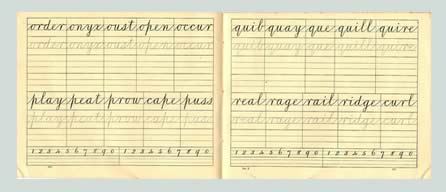 order onyx oust open occur
order onyx oust open occur
play peat prow cape puss
play peat prow cape puss
1 2 3 4 5 6 7 8 9 0 1 2 3 4 5 6 7 8 9 0
quib quay que quill quire
quib quay que quill quire
real rage rail ridge curl
real rage rail ridge curl
1 2 3 4 5 6 7 8 9 0 1 2 3 4 5 6 7 8 9 0